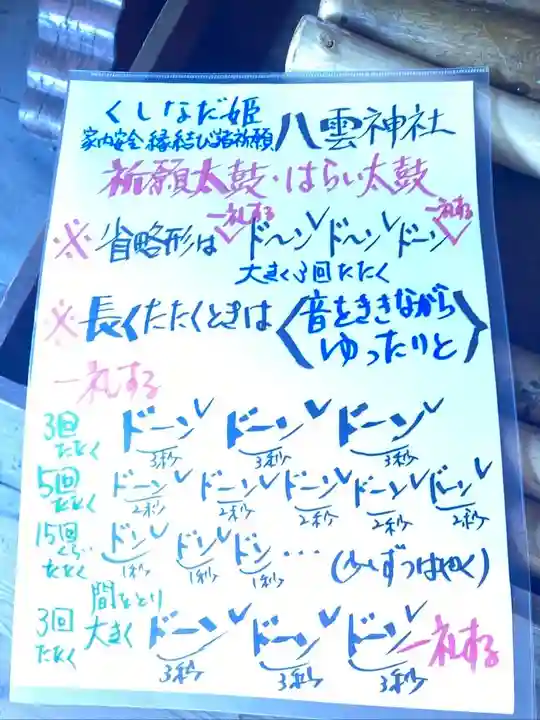 くしなだ姫
家内安全 縁結び 諸祈願 八雲神社
祈願太鼓・はらい太鼓
一礼する 一礼する
※省略形は ド〜ン ド〜ン ドーン
大きく3回たたく
※長くたたくときは〈音をききながら ゆったりと〉
一礼する
3回たたく ドーン ドーン ドーン
3秒 3秒 3秒
5回たたく ドーン ドーン ドーン ドーン ドーン
2秒 2秒 2秒 2秒 2秒
15回くらいたたく ドン ドン ドン … (少しずつはやく)
1秒 1秒 1秒
間をとり
3回たたく 大きく ドーン ドーン ドーン 一礼する
3秒 3秒 3秒